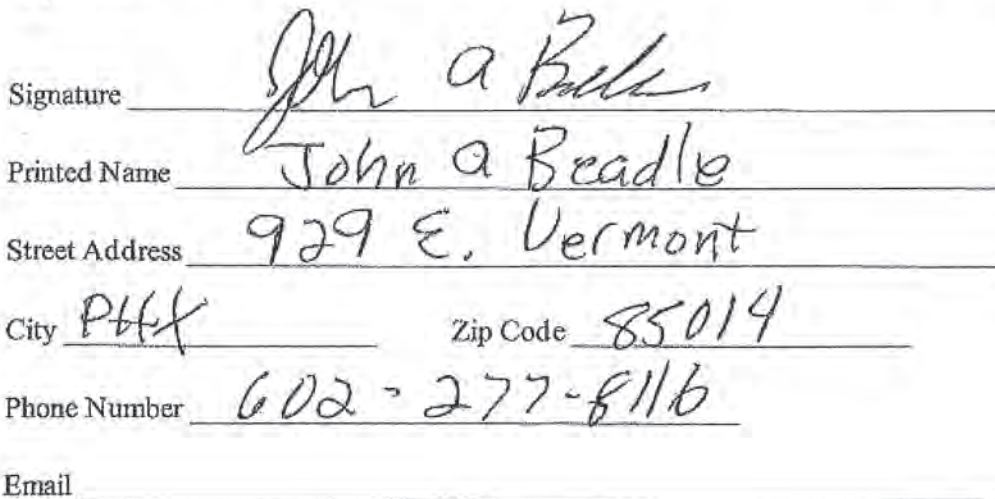 Signature John a Beadle
Printed Name John a Beadle
Street Address 929 E. Vermont
City PHX Zip Code 85014
Phone Number 602-277-8116
Email